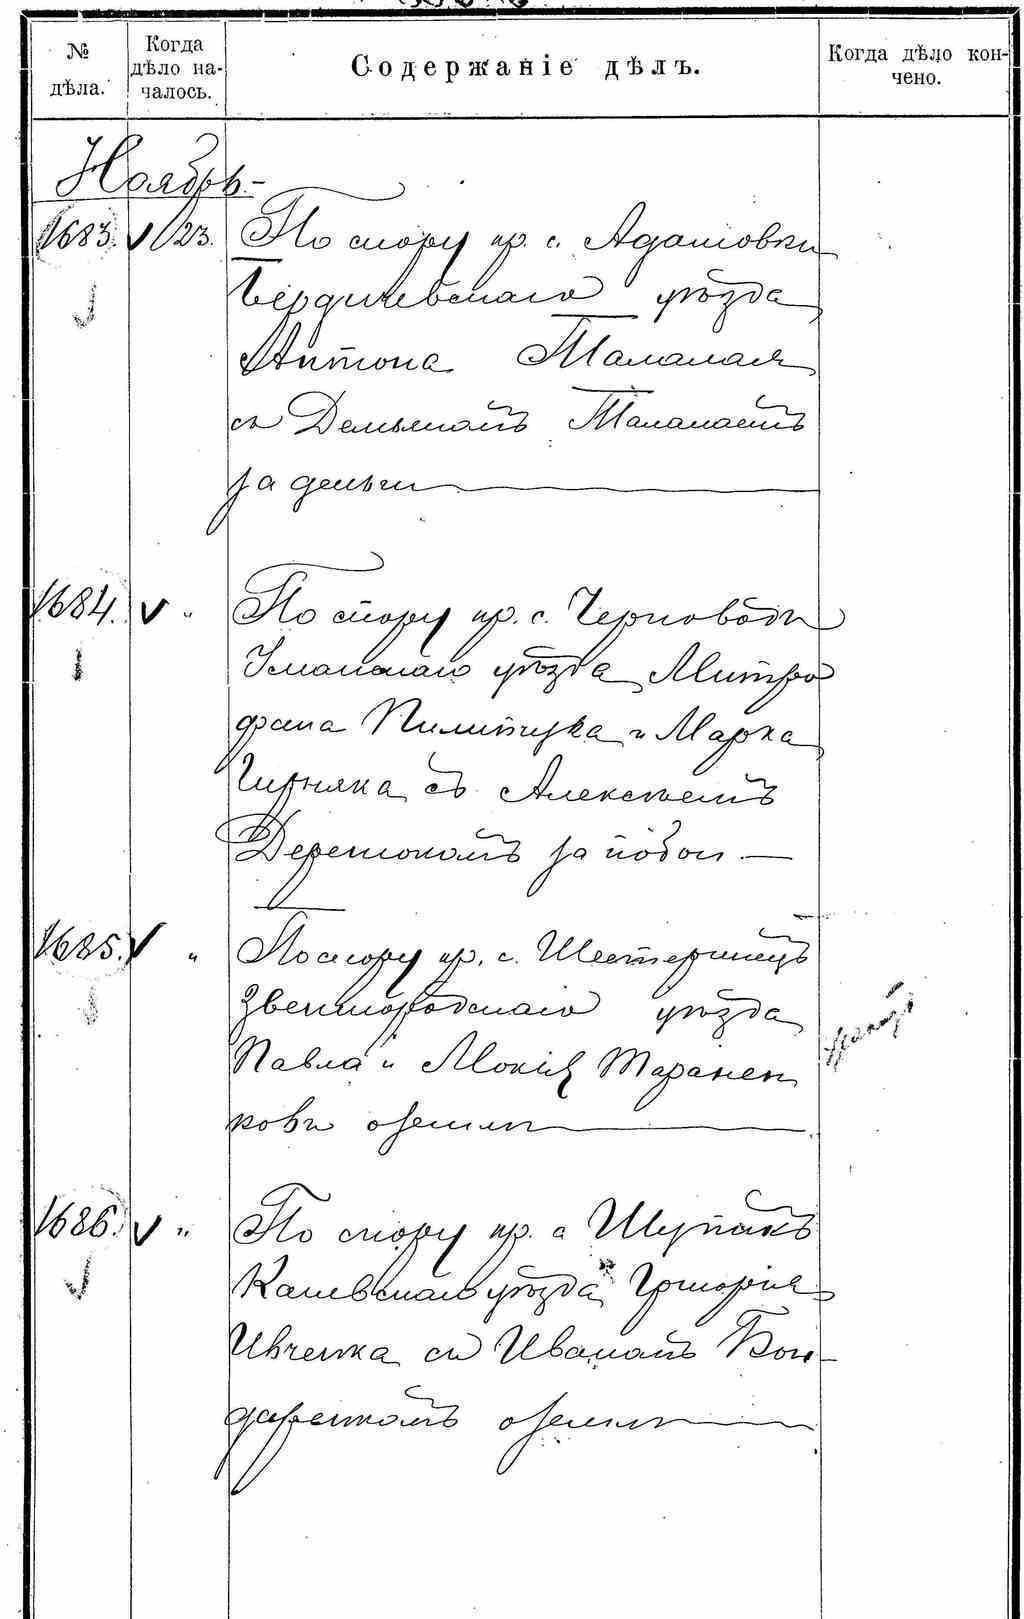 № дѣла.
Когда дѣло на-чалось.
Содержаніе дѣлъ.
Когда дѣло кон-чено.
Ноябрь.-
1683. 23. По спору кр. с. Адамовки
Бердичевскаго уѣзда
Антона Талалая
съ Демьяномъ Талалаемъ
за деньги
1684. „ По спору кр. с. Черноводъ
Уманскаго уѣзда Митро
фана Пилипчука и Марка
съ Алексѣемъ
за побои —
1685. „ По спору кр. с. Шестеринецъ
Звенигородскаго уѣзда
Павла и Мокія Таранен
ковъ о землѣ
1686. „ По спору кр. с Шупикъ
Каневскаго уѣзда Григорія
Ивченка съ Иваномъ Бон-
даренкомъ о землѣ